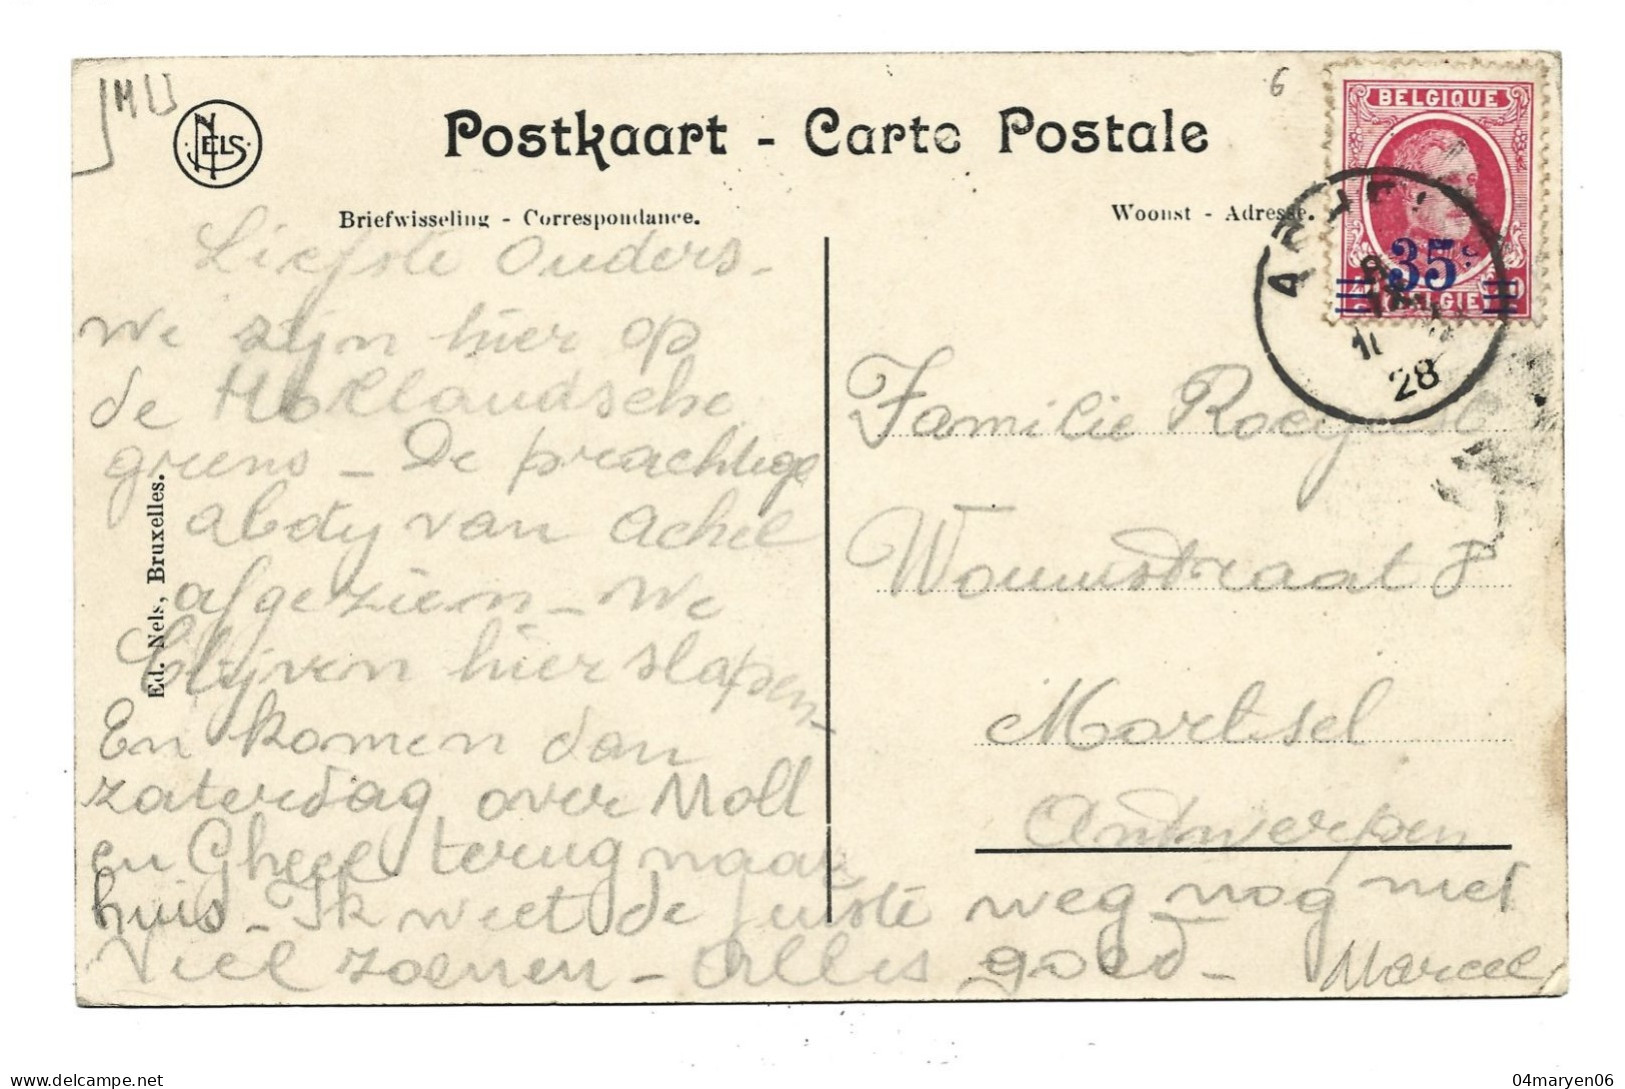 MU
NELS
6
Postkaart - Carte Postale
Briefwisseling - Correspondance.
Woonst - Adresse.
BELGIQUE
35c
BELGIE
28
Liefste Ouders -
We zijn hier op
de Hollandsche
grens - De prachtige
abdij van Achel
afgezien - We
blijven hier slapen -
En komen dan
zaterdag over Moll
en Gheel terug naar
huis - Ik weet de juiste weg nog niet
Viel zoenen - Alles goed - Marcel
Ed. Nels, Bruxelles.
Familie
Wouwstraat 8
Mortsel
Antwerpen
04maryen06